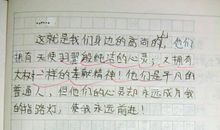 这就是我们身边的高尚的，他们
拥有天使羽翼般纯洁的心灵，又拥有
大树一样的奉献精神！他们是平凡的
普通人，但他们的心灵却永远成为我
的指路灯，使我永远前进！